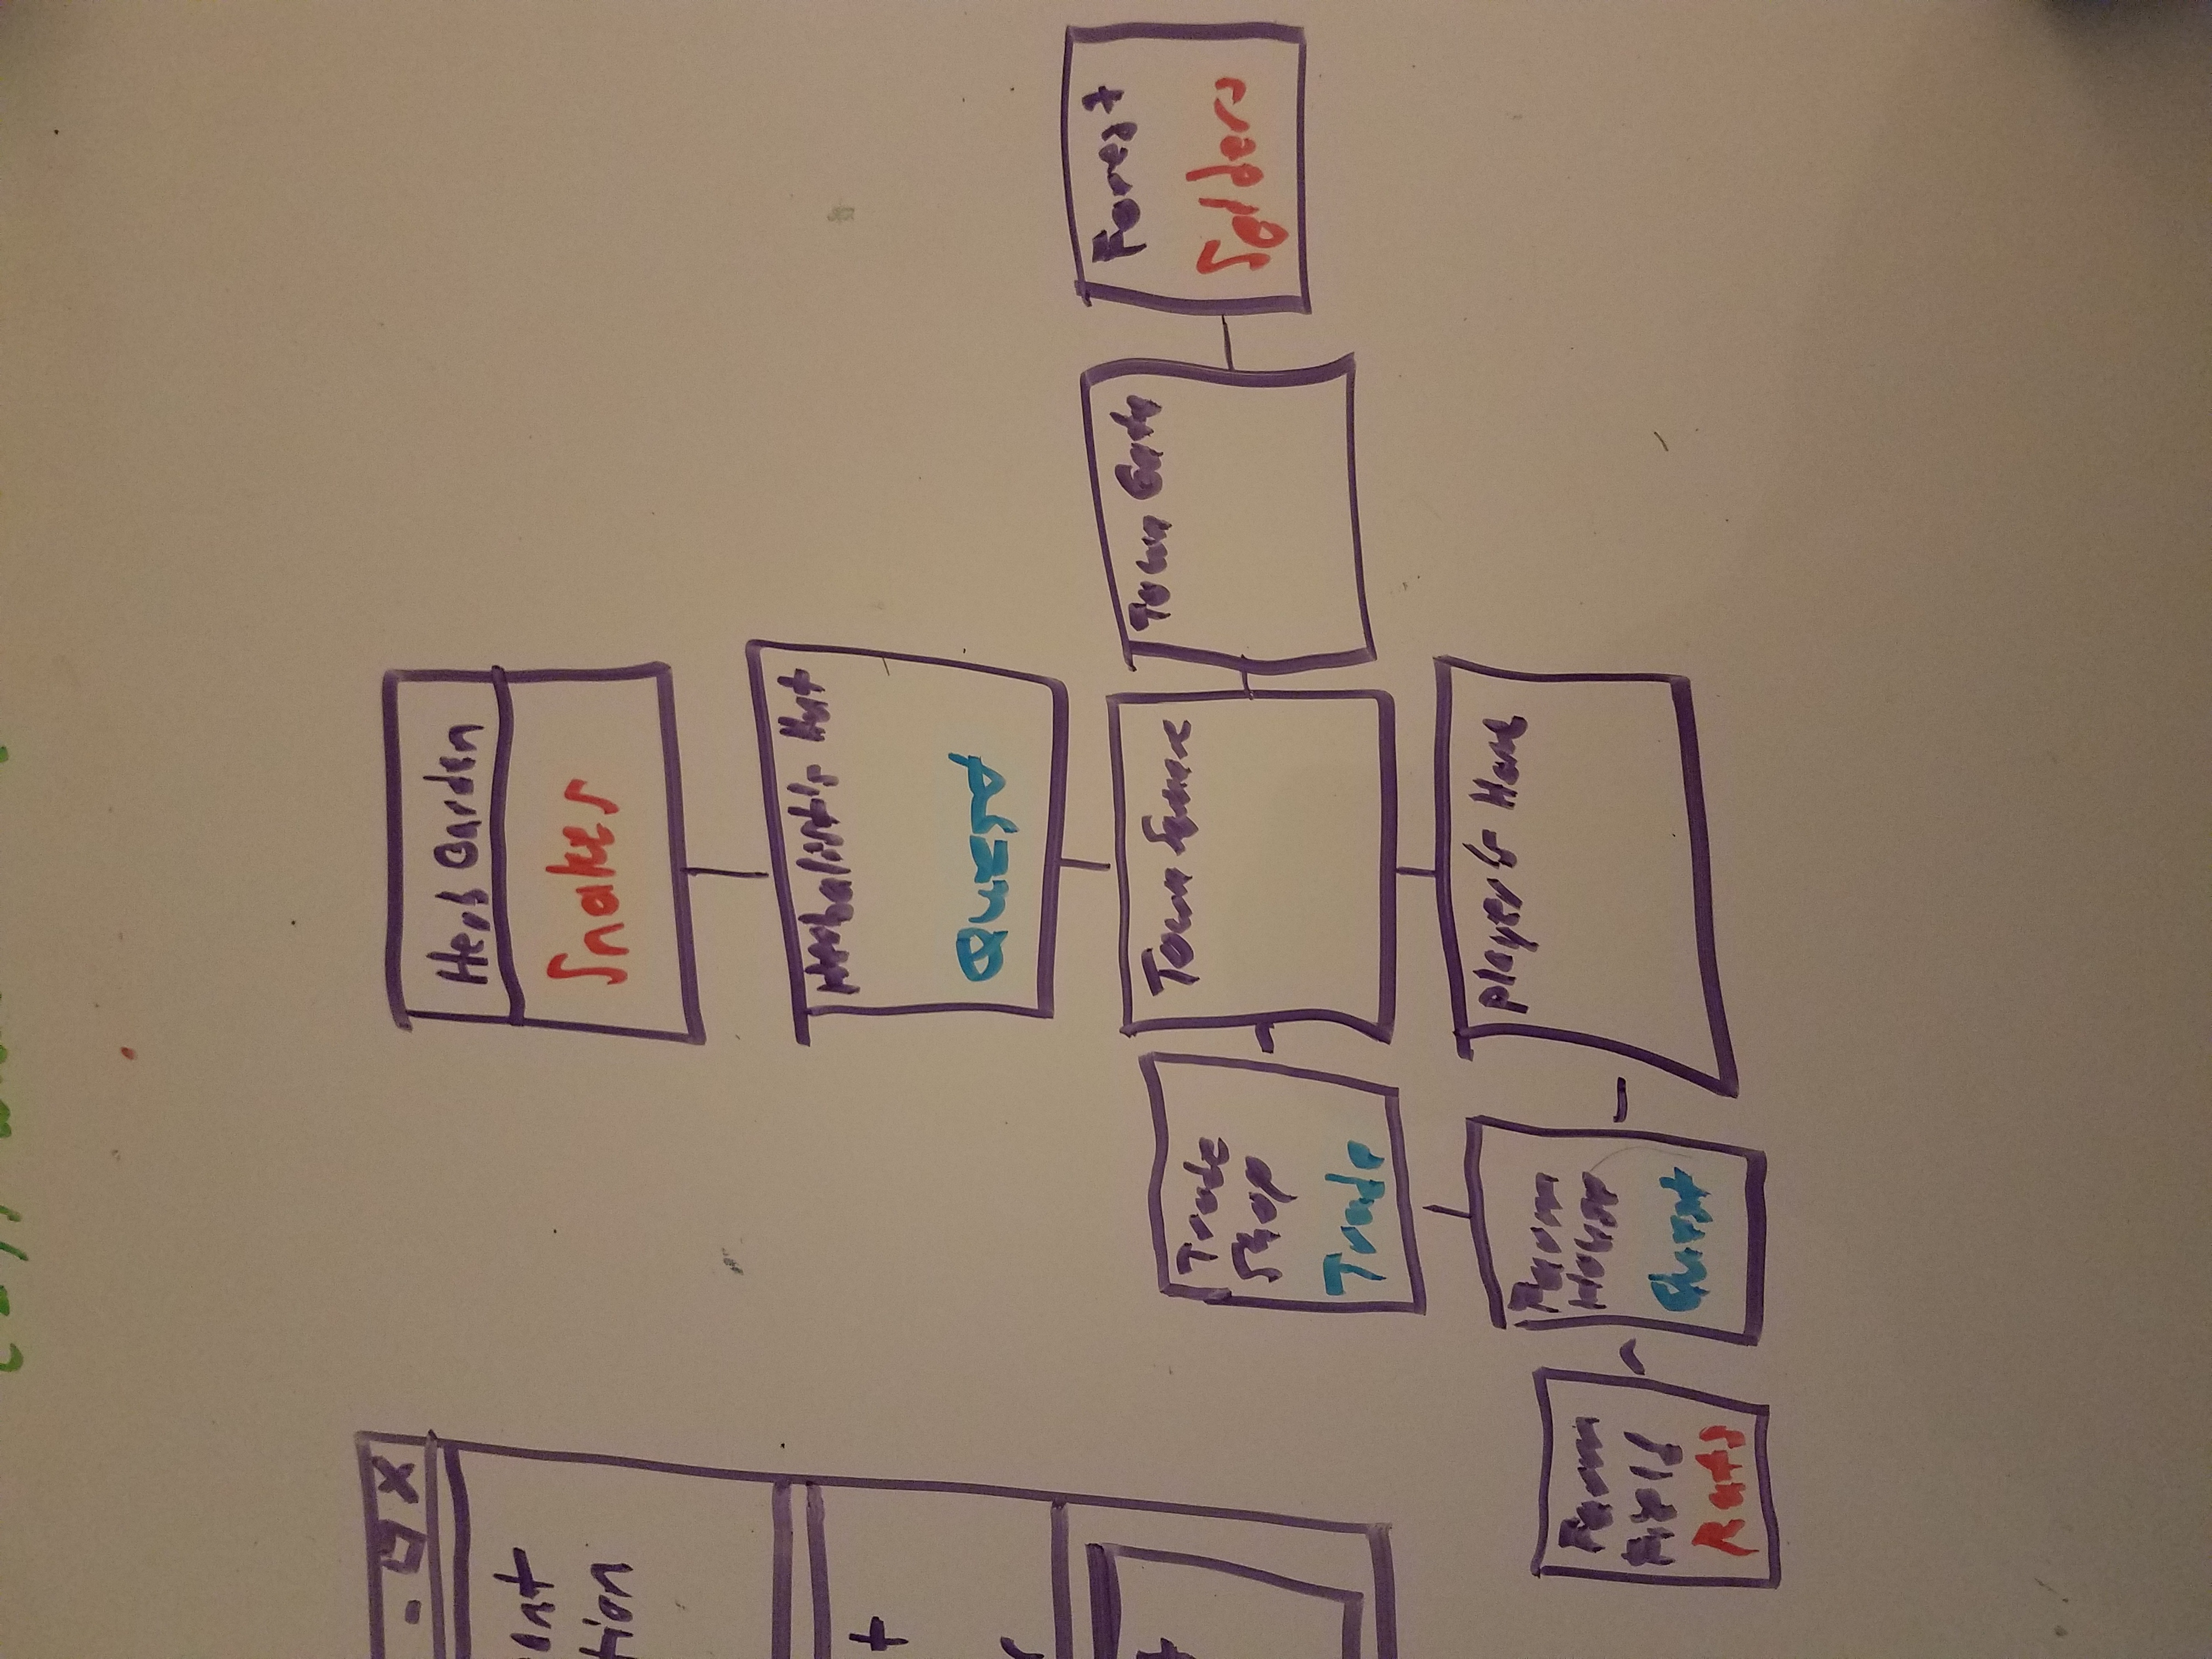 ant
tion
+
Herb Garden
Snakes
Herbalist's Hut
Quest
Trade
Shop
Trade
Town Square
Town Gate
Forest
Spiders
Farm
Field
Rats
Farm
House
Quest
Player's Home